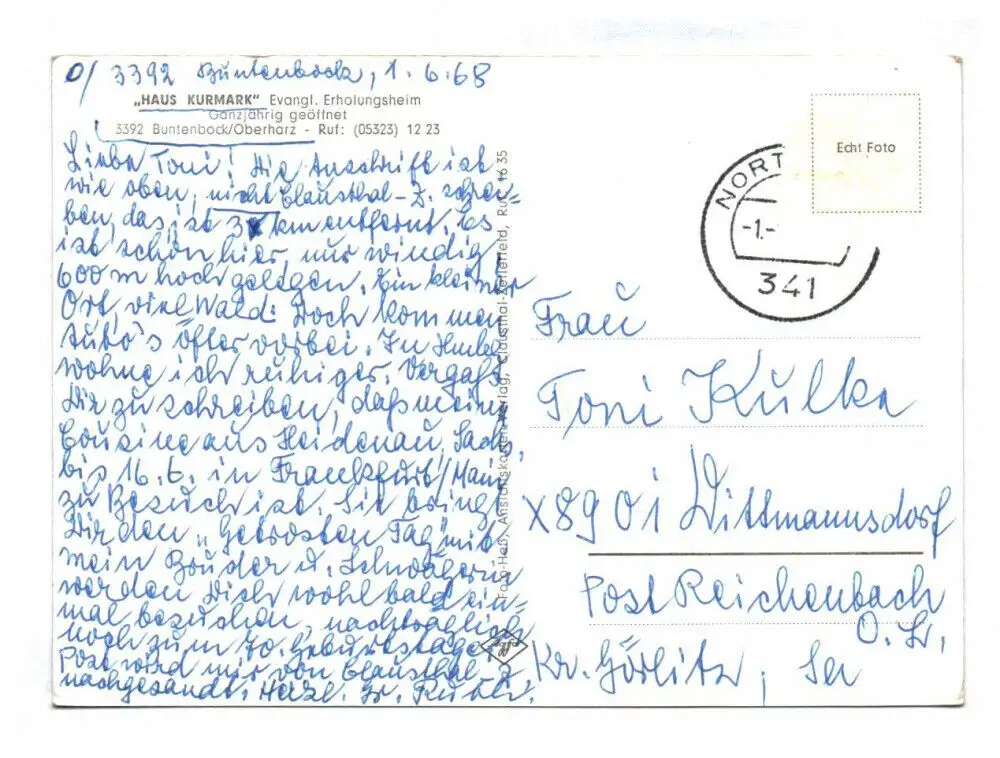 O/ 3392 Buntenbock, 1.6.68
„HAUS KURMARK" Evangl. Erholungsheim
Ganzjährig geöffnet
3392 Buntenbock/Oberharz - Ruf: (05323) 12 23
Liebe Toni! Die Anschrift ist
wie oben, nicht Clausthal-Z. schrei=
ben, das ist 3 km entfernt. Es
ist schön hier, nur windig,
600 m hoch gelegen. Ein kleiner
Ort, viel Wald. Doch kommen
Auto's öfter vorbei. In
wohne ich ruhiger. Vergaß
Dir zu schreiben, daß meine
Cousine aus Heidenau, Sachs.
bis 16.6. in Frankfurt/Main
zu Besuch ist. Sie bringt
Dir den „Getrosten Tag" mit
mein Bruder u. Schwägerin
werden Dich wohl bald ein=
mal besuchen, nachträglich
noch zum 70. Geburtstage.
Post wird mir von Clausthal-Z.
nachgesandt. Herzl. Gr.
Foto-Heß, Ansichtskartenverlag, Clausthal-Zellerfeld, Ruf: 16 35
Agfa
Echt Foto
NORT
-1.-
341
Frau
Toni Kulka
X8901 Wittmannsdorf
Post Reichenbach
O. L.
Kr. Görlitz,